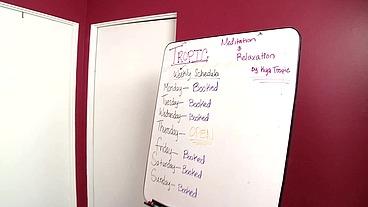 TROPIC
Meditation
&
Relaxation
By Kiya Tropic
Weekly Schedule
Monday — Booked
Tuesday — Booked
Wednesday — Booked
Thursday — OPEN
Friday — Booked
Saturday — Booked
Sunday — Booked